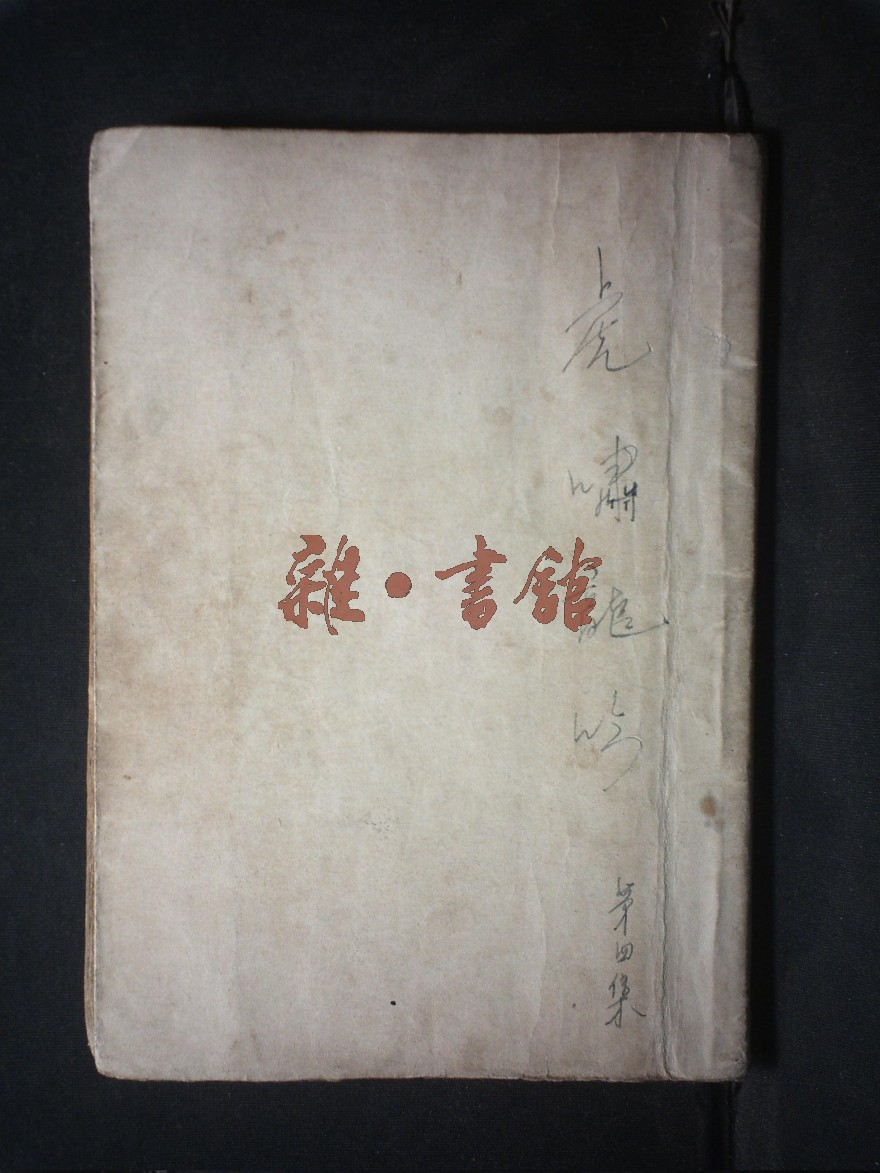 虎嘯龍吟
第四集
雜·書館